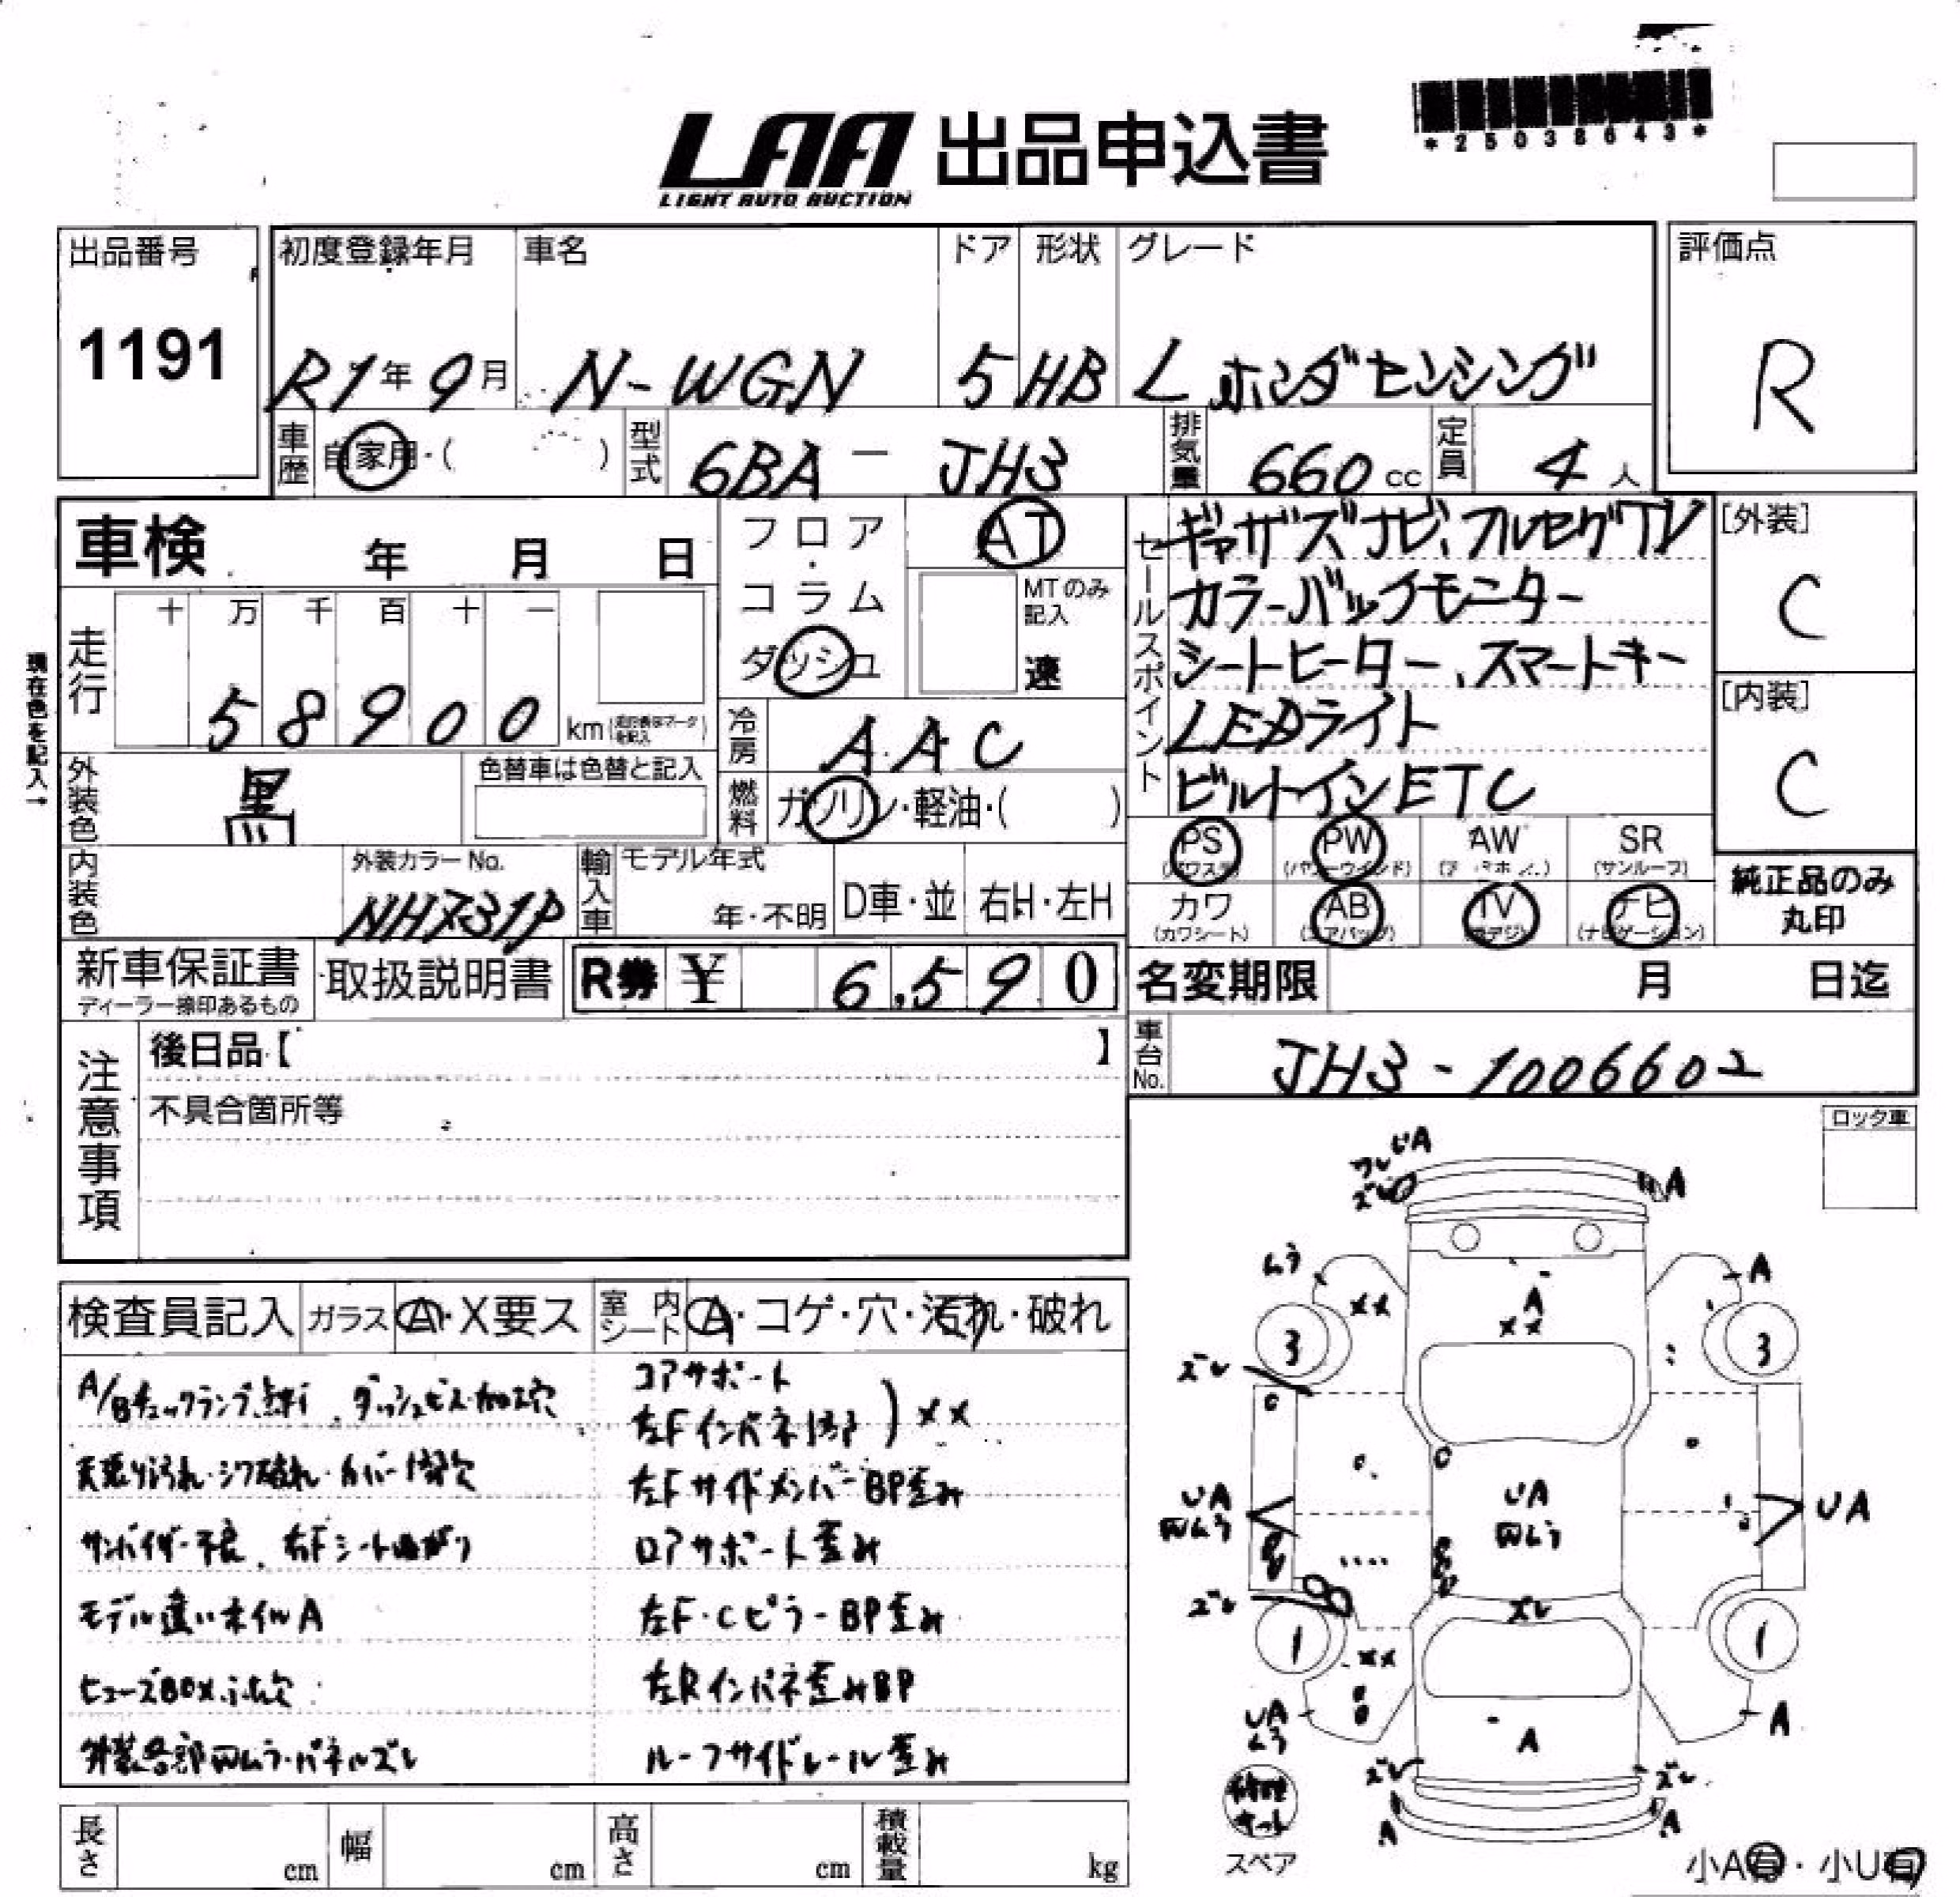 *25038643*
LAA 出品申込書
LIGHT AUTO AUCTION
出品番号
1191
初度登録年月
R1年9月
車名
N-WGN
ドア
5
形状
HB
グレード
L ホンダセンシング
評価点
R
車歴
自家用・( )
型式
6BA - JH3
排気量
660cc
定員
4人
車検 年 月 日
フロア・コラム
ダッシュ
AT
MTのみ記入
速
セールスポイント
ギャザズナビ、フルセグTV
カラーバックモニター
シートヒーター、スマートキー
LEDライト
ビルトインETC
[外装]
C
[内装]
C
現在色を記入→
走行
十万千百十一
58900
km
冷房
AAC
外装色
黒
色替車は色替と記入
燃料
ガソリン・軽油・( )
PS
(パワステ)
PW
(パワーウインド)
AW
SR
(サンルーフ)
カワ
(カワシート)
AB
(エアバッグ)
TV
ナビ
(ナビゲーション)
純正品のみ
丸印
内装色
外装カラーNo.
NH731P
輸入車
モデル年式
年・不明
D車・並
右H・左H
新車保証書
ディーラー捺印あるもの
取扱説明書
R券 ¥ 6,590
名変期限 月 日迄
車台No.
JH3-1006602
注意事項
後日品【 】
不具合箇所等
ロック車
検査員記入
ガラス
A・X要ス
室内シート
A・コゲ・穴・汚れ・破れ
A/Bチェックランプ点灯、ダッシュビス・加工穴
天張り汚れ・シワ破れ・カバー1部欠
サンバイザー不良、右Fシート曲がり
モデル違いホイルA
ヒューズBOXふた欠
外装各部凹ムラ・パネルズレ
コアサポート
左Fインパネ1部 ) XX
左FサイドメンバーBP歪み
ロアサポート歪み
左F・CピラーBP歪み
左Rインパネ歪みBP
ルーフサイドレール歪み
UA
ワレ
ズレ
A
ムラ
A
XX
A
XX
3
3
ズレ
UA
凹ムラ
UA
凹ムラ
UA
ズレ
XV
1
1
XX
UA
ムラ
A
A
ズレ
ズレ
A
A
修理キット
スペア
長さ cm
幅 cm
高さ cm
積載量 kg
小A有・小U有